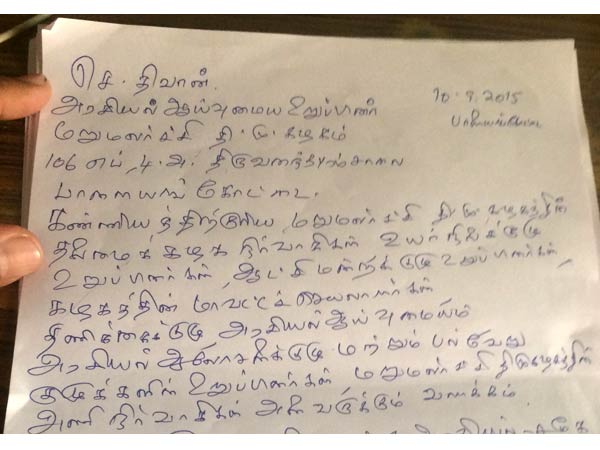 செ. திவான்.
அரசியல் ஆய்வுமைய உறுப்பினர் 10.9.2015
மறுமலர்ச்சி தி.மு.கழகம் பாளையங்கோட்டை
106 எப், 4.அ. திருவனந்தபுரம்சாலை
பாளையங் கோட்டை.
கண்ணியத்திற்குரிய மறுமலர்ச்சி தி.மு.கழகத்தின்
தலைமைக் கழக நிர்வாகிகள் உயர்நிலைக்குழு
உறுப்பினர்கள், ஆட்சிமன்றக்குழு உறுப்பினர்கள்,
கழகத்தின் மாவட்டச் செயலாளர்கள்
தணிக்கைக்குழு அரசியல் ஆய்வுமையம்
அரசியல் ஆலோசனைக்குழு மற்றும் பல்வேறு
குழுக்களின் உறுப்பினர்கள், மறுமலர்ச்சி திமுகழகத்தின்
அணி நிர்வாகிகள் அனைவருக்கும் வணக்கம்.